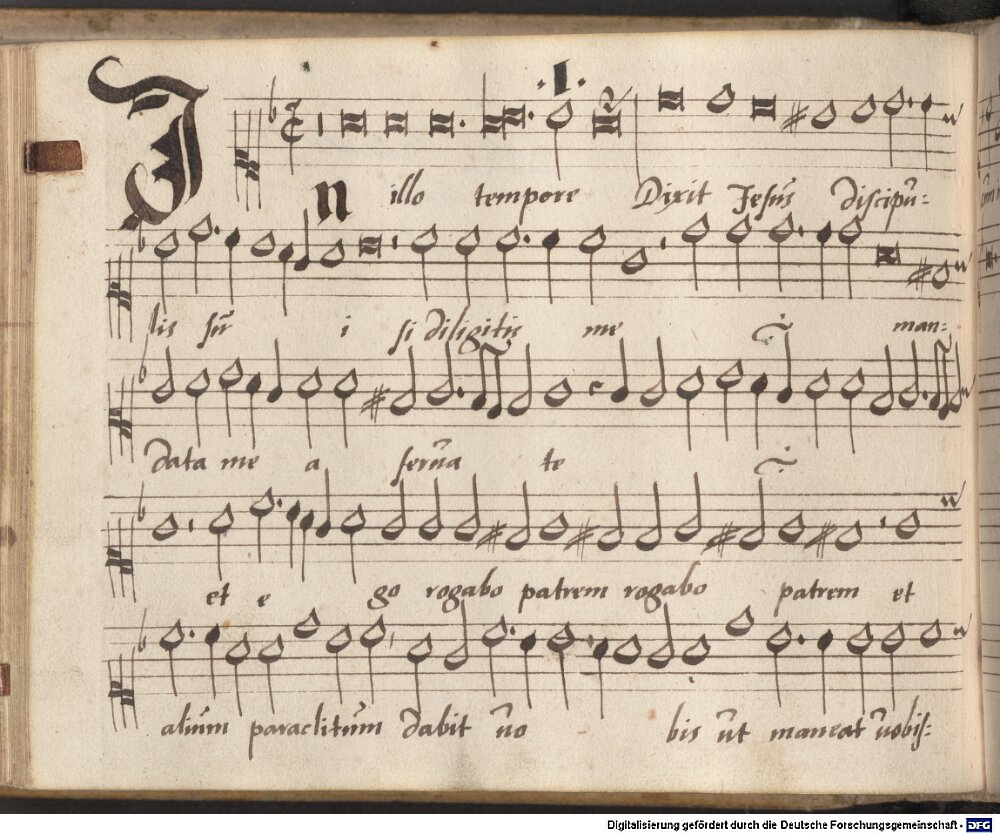 .I.
In illo tempore Dixit Jesus̃ discipũ:
lis sũi si diligitis me ·/· man:
data mea serũate ·/·
et ego rogabo patrem rogabo patrem et
aliũm paraclitũm dabit ũobis ũt maneat ũobis:
Digitalisierung gefördert durch die Deutsche Forschungsgemeinschaft - DFG